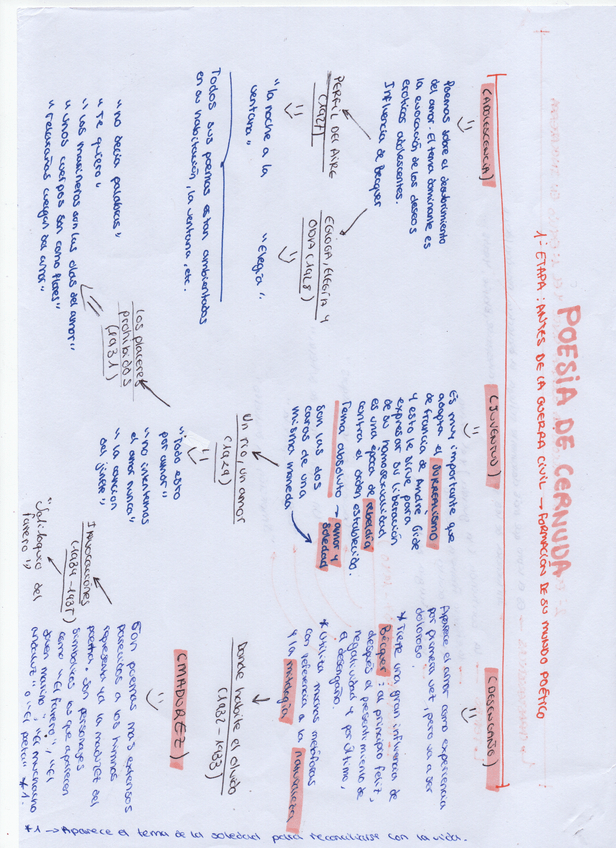 POESIA DE CERNUDA
1ª ETAPA: ANTES DE LA GUERRA CIVIL → FORMACIÓN DE SU MUNDO POÉTICO
(ADOLESCENCIA)
Poemas sobre el descubrimiento
del amor. El tema dominante es
la evocación de los deseos
eróticos adolescentes.
Influencia de Becquer
PERFIL DEL AIRE
(1927)
"la noche a la
ventana"
EGLOGA, ELEGIA Y
ODA (1928)
"Elegía".
Todos sus poemas están ambientados
en su habitación, la ventana, etc.
(JUVENTUD)
Es muy importante que
adapta el SURREALISMO
de francia de André Gide
y esto le sirve para
expresar su liberación
de su homosexualidad
es una época de rebeldía
contra el orden establecido.
Tema absoluto → amor y
soledad
son las dos
caras de una
misma moneda
Un río, un amor
(1929)
"Todo esto
por amor"
"no intentemos
el amor nunca"
"la canción
del jueste"
Los placeres
prohibidos
(1931)
"no decía palabras"
"Te quiero"
"Los marineros son las alas del amor"
"Unos cuerpos son como flores"
"Telarañas cuelgan de amor"
(DESENGAÑO)
Aparece el amor como experiencia
por primera vez, pero va a ser
doloroso.
* Tiene una gran influencia de
Becquer: al principio feliz,
después el presentimiento de
negatividad y por último,
el desengaño.
* Utiliza muchas metáforas
con referencia a la naturaleza
y la mitología
Donde habite el olvido
(1932-1933)
(MADUREZ)
Invocaciones
(1934-1935)
"Soliloquio del
farero"
Son poemas más extensos
parecidos a los himnos
representa ya la madurez del
poeta. Son personajes
simbólicos los que aparecen
como "El farero", "el
joven marino", "el muchacho
andaluz" o "el poeta" *1.
*1 → Aparece el tema de la soledad para reconciliarse con la vida.